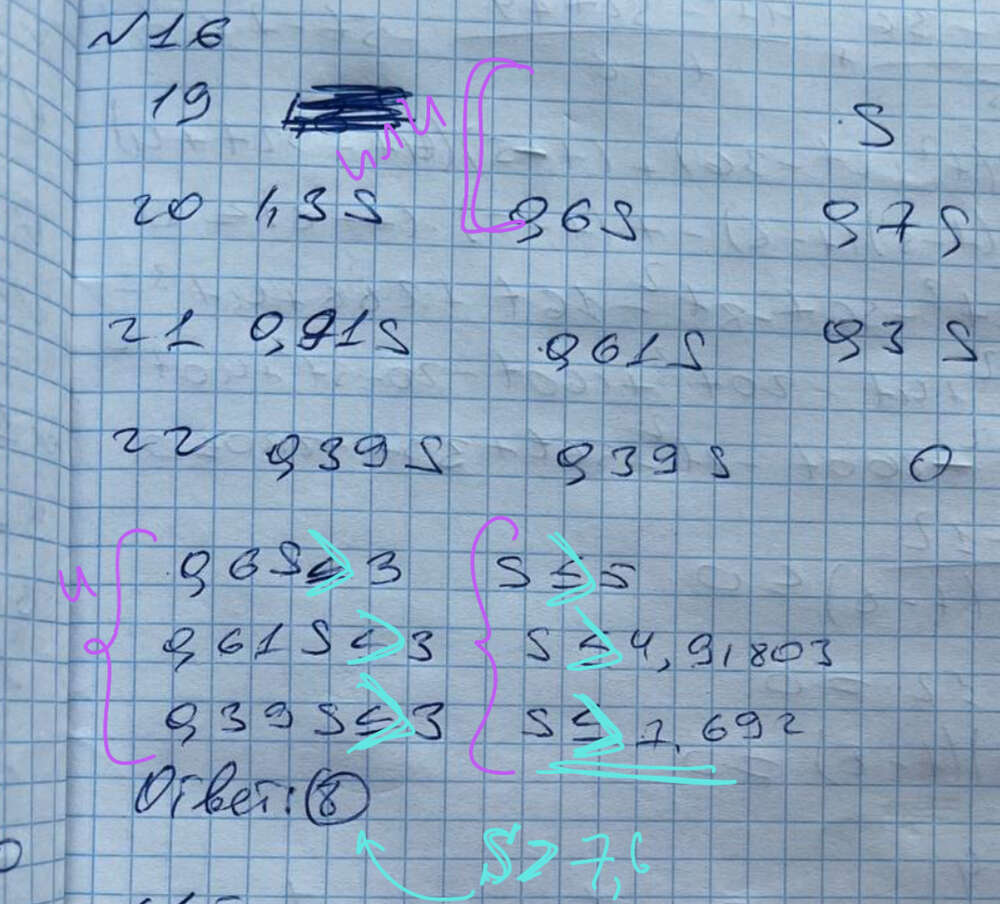 №16
19 или S
20 1,3S 0,6S 0,7S
21 0,91S 0,61S 0,3S
22 0,39S 0,39S 0
и 0,6S ≥ 3 S ≥ 5
0,61S ≥ 3 S ≥ 4,91803
0,39S ≥ 3 S ≥ 7,692
Ответ: 8
S ≥ 7,6